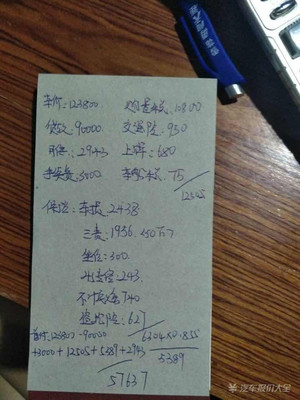 车价:123800  购置税:10800
贷款:90000  交强险:950
月供:2943  上牌:680
手续费:3000  车船税:75
12505
保险:车损2438
三责:1956.<50万>
坐位:300.
243.
不计免赔:740
627  6304×0.855
首付:123800-90000  5389
+3000+12505+5389+2943
57637
汽车报价大全